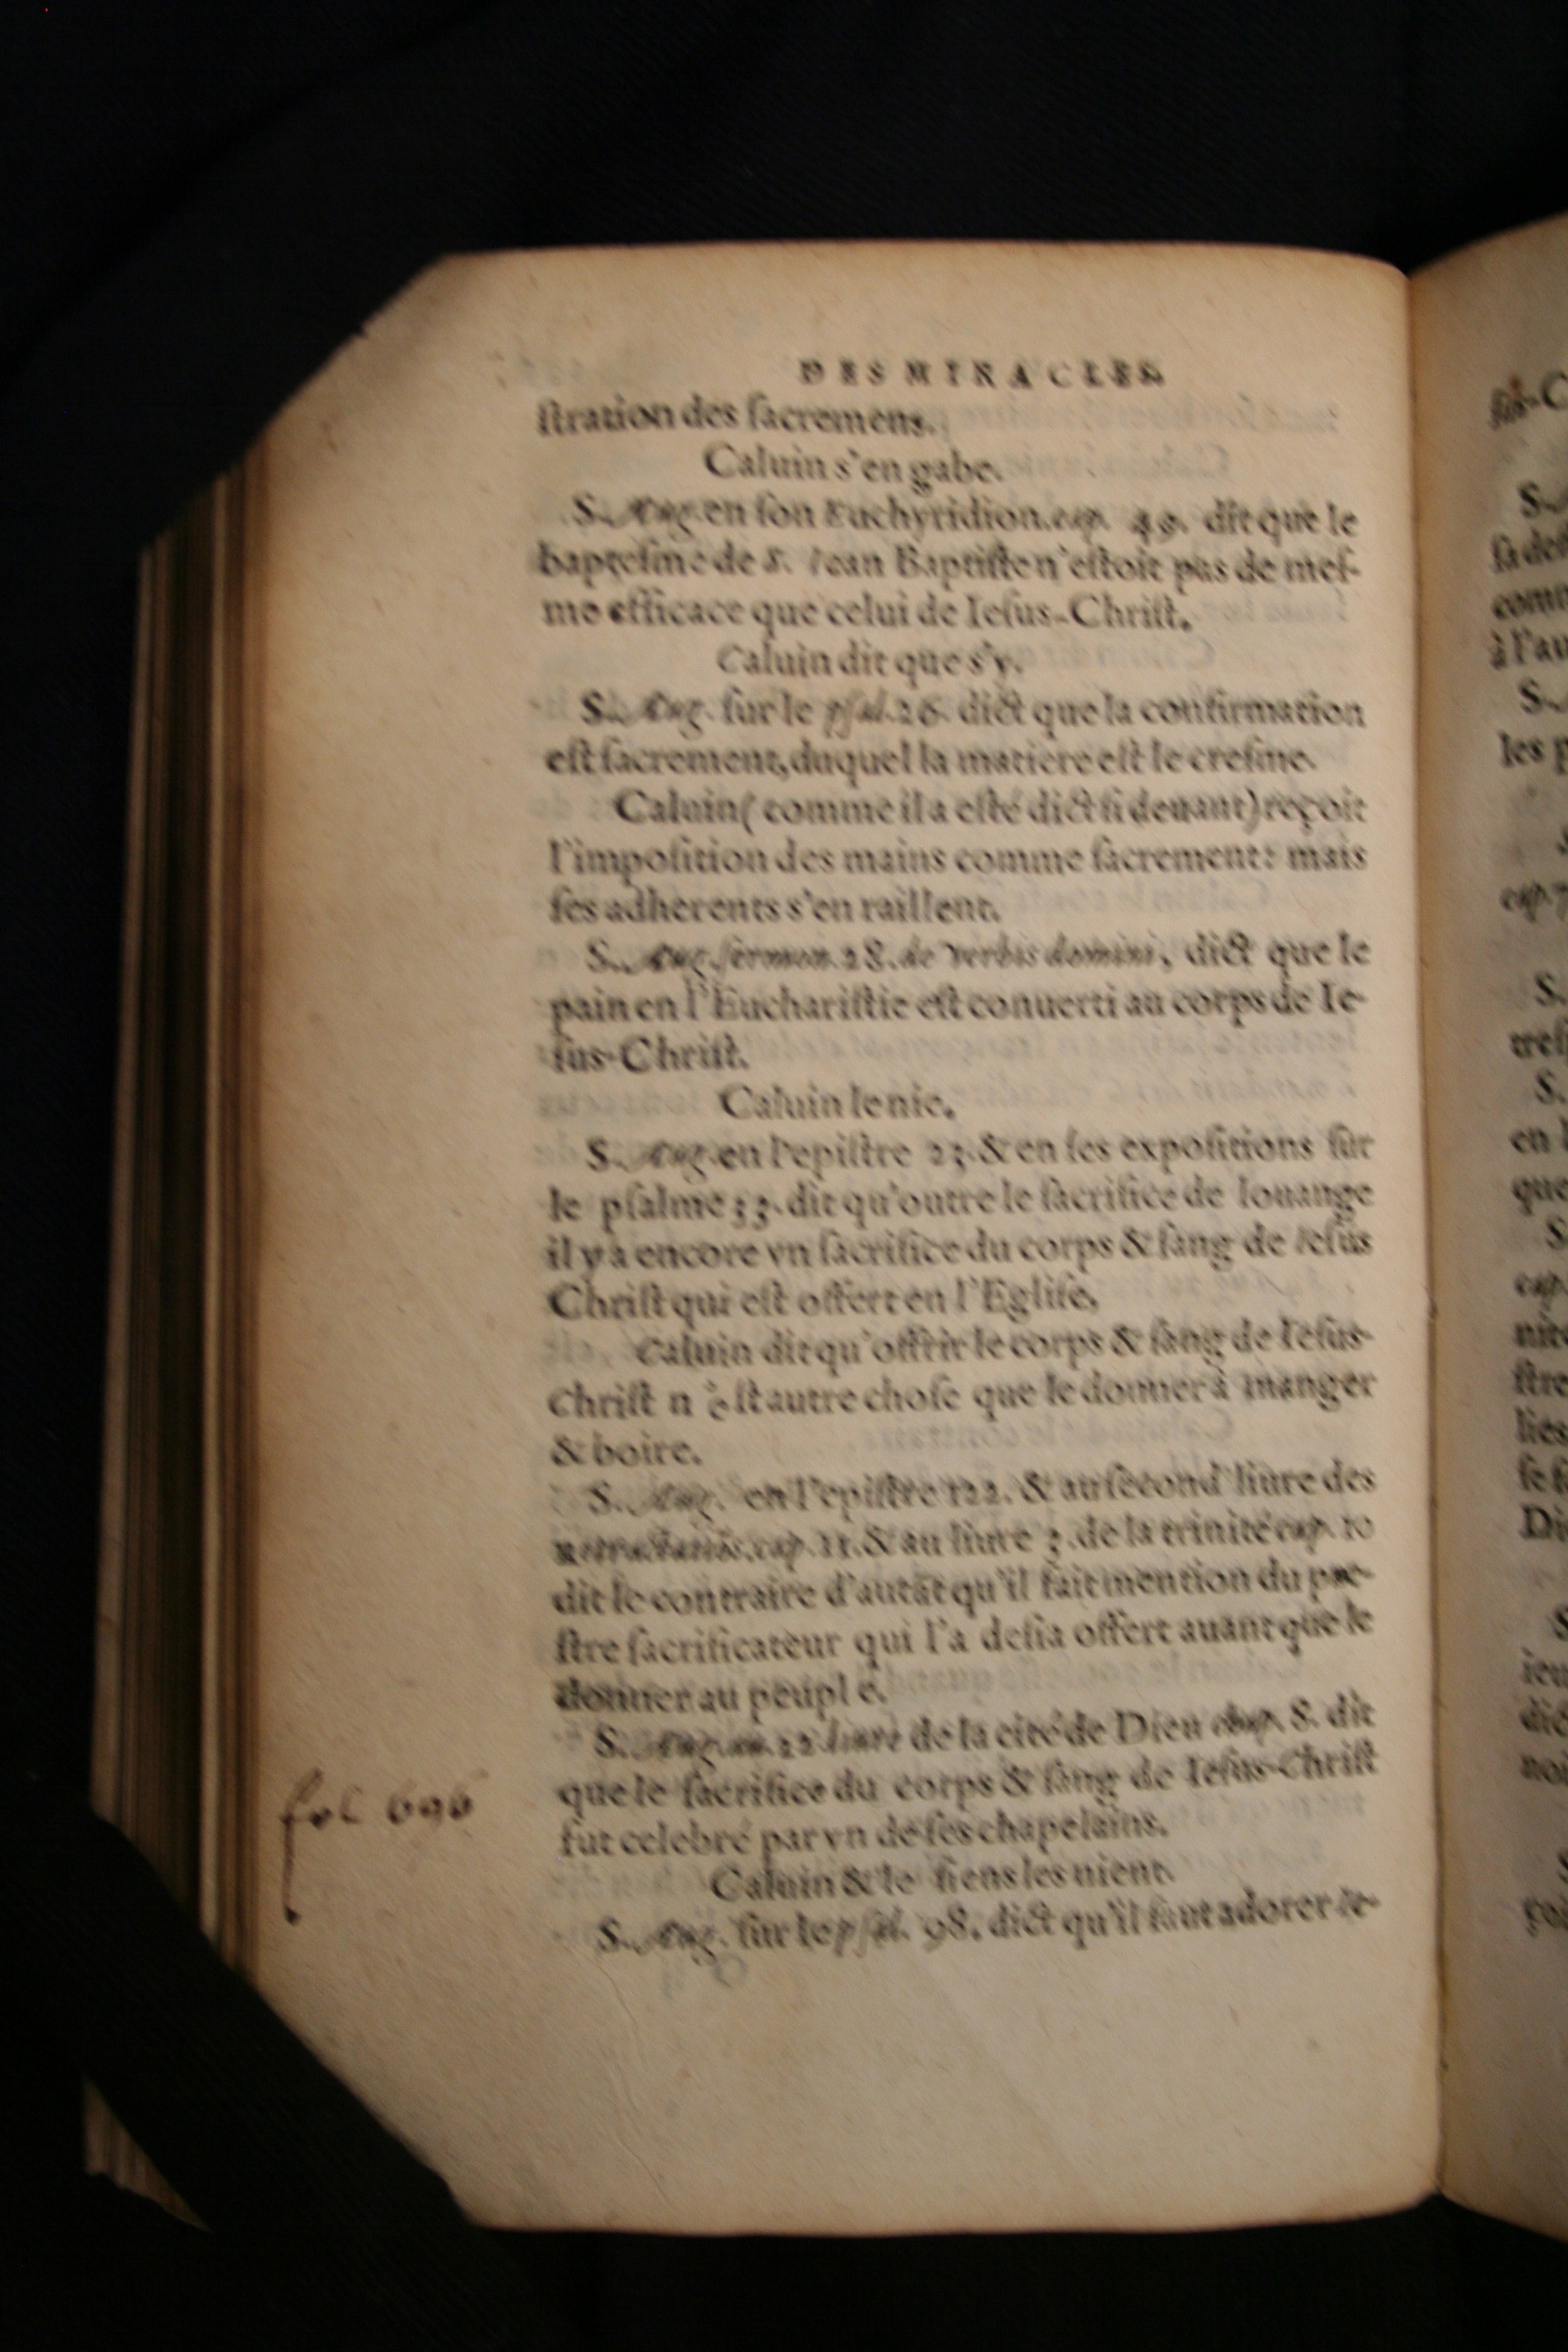 DES MIRACLES
ſtration des ſacremens.
Caluin s'en gabe.
S. Aug. en ſon Euchyridion. cap. 49. dit que le
bapteſme de S. Iean Baptiſte n'eſtoit pas de meſ-
me efficace que celui de Ieſus-Chriſt.
Caluin dit que s'y.
S. Aug. ſur le pſal. 26. dict que la confirmation
eſt ſacrement, duquel la matiere eſt le creſme.
Caluin ( comme il a eſté dict ſi deuant) reçoit
l'impoſition des mains comme ſacrement: mais
ſes adherents s'en raillent.
S. Aug. ſermon. 28. de verbis domini, dict que le
pain en l'Euchariſtie eſt conuerti au corps de Ie-
ſus-Chriſt.
Caluin le nie.
S. Aug. en l'epiſtre 23. & en ſes expoſitions ſur
le pſalme 33. dit qu'outre le ſacrifice de louange
il y a encore vn ſacrifice du corps & ſang de Ieſus
Chriſt qui eſt offert en l'Egliſe.
Caluin dit qu'offrir le corps & ſang de Ieſus-
Chriſt n'eſt autre choſe que le donner à manger
& boire.
S. Aug. en l'epiſtre 122. & au ſecond liure des
cap. 11. & au liure 3. de la trinité cap. 10
dit le contraire d'autāt qu'il fait mention du pre-
ſtre ſacrificateur qui l'a deſia offert auant que le
donner au peuple.
S. Aug. au 22 liure de la cité de Dieu chap. 8. dit
que le ſacrifice du corps & ſang de Ieſus-Chriſt
fut celebré par vn de ſes chapelains.
Caluin & le ſiens les nient.
S. Aug. ſur le pſal. 98. dict qu'il faut adorer Ie-
fol 696